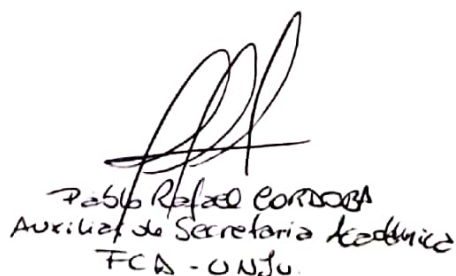 Pablo Rafael CORDOBA
Auxiliar de Secretaria Académica
FCA - UNJu.